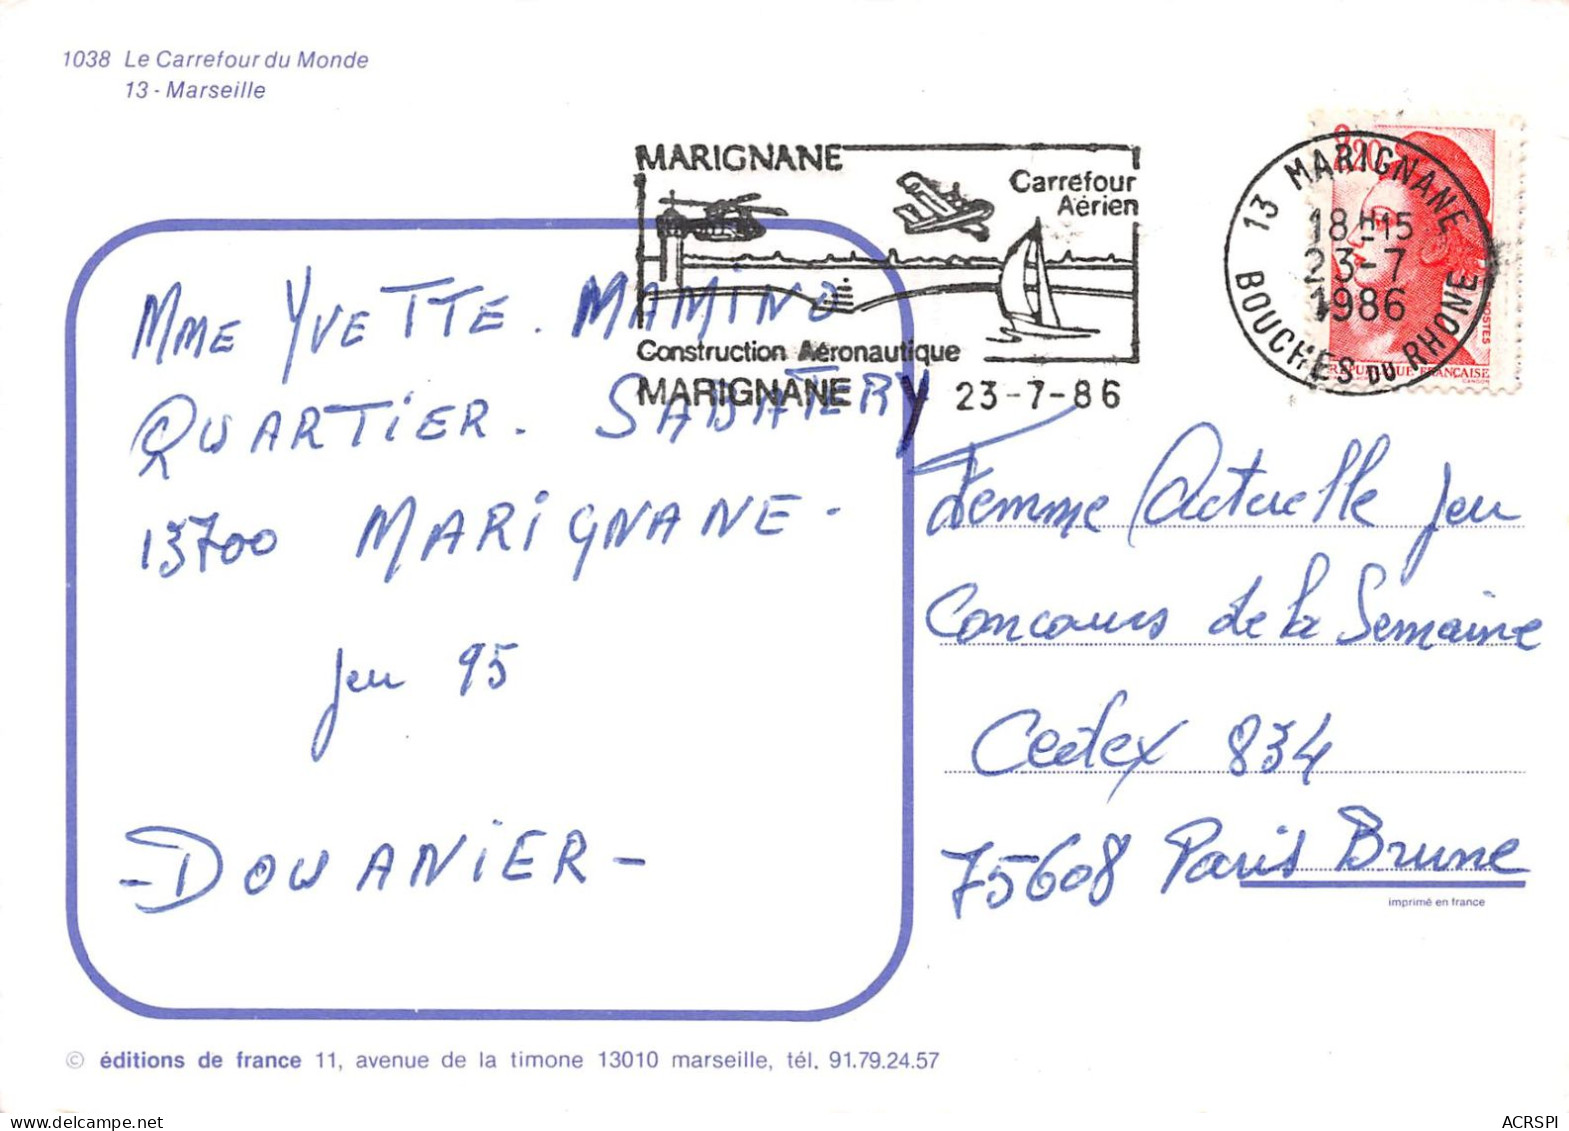 1038 Le Carrefour du Monde
13 - Marseille
MARIGNANE
Carrefour
Aérien
Construction Aéronautique
MARIGNANE
23-7-86
13 MARIGNANE
18H15
23-7
1986
BOUCHES DU RHONE
2,20
POSTES
REPUBLIQUE FRANÇAISE
GANDON
MME YVETTE. MAMINO
QUARTIER. SABATERY
13700 MARIGNANE -
jeu 95
- DOUANIER -
Femme Actuelle jeu
Concours de la Semaine
Cedex 834
75608 Paris Brune
imprimé en france
© éditions de france 11, avenue de la timone 13010 marseille, tél. 91.79.24.57
ACRSPI